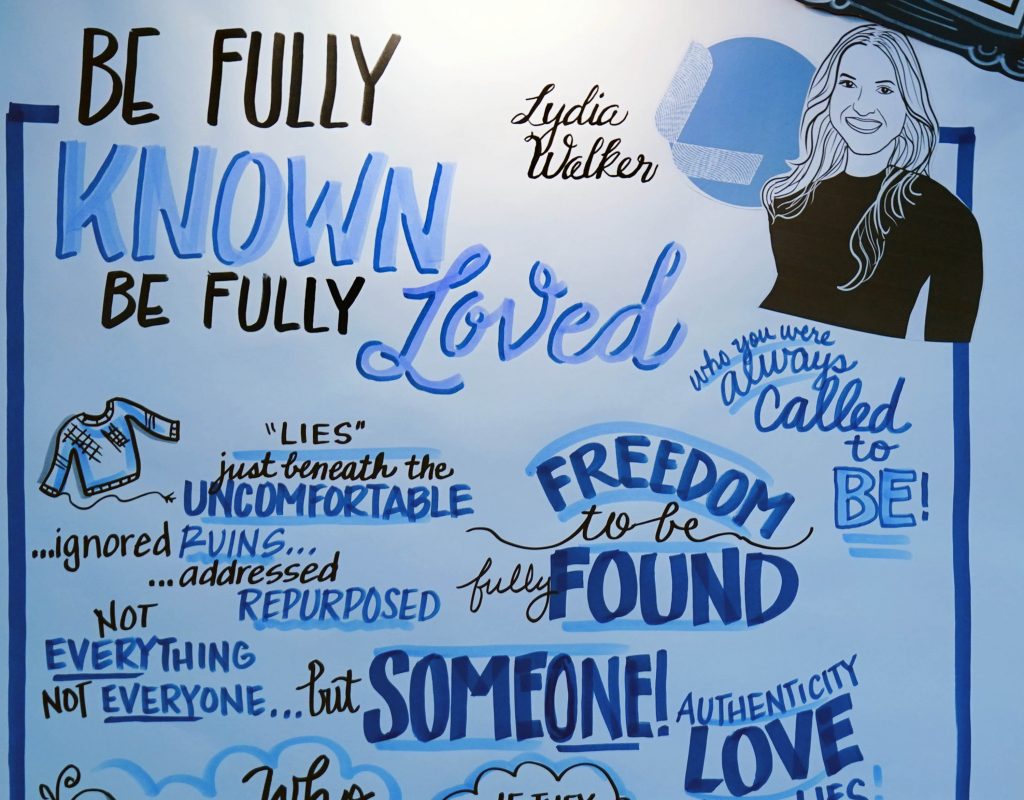 BE FULLY
KNOWN
BE FULLY
Loved
Lydia
Walker
who you were
always
called
to
BE!
"LIES"
just beneath the
UNCOMFORTABLE
...ignored RUINS...
...addressed
REPURPOSED
NOT
EVERYTHING
NOT EVERYONE...but
SOMEONE!
FREEDOM
to be
fully FOUND
AUTHENTICITY
LOVE
Who
IF THEY